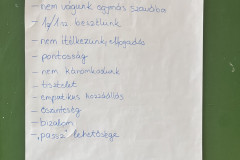 - nem vágunk egymás szavába
- 1/ 1sz beszélünk
- nem ítélkezünk, elfogadás
- pontosság
- nem káromkodunk
- tisztelet
- empatikus hozzáállás
- őszinteség
- bizalom
- "passz" lehetősége